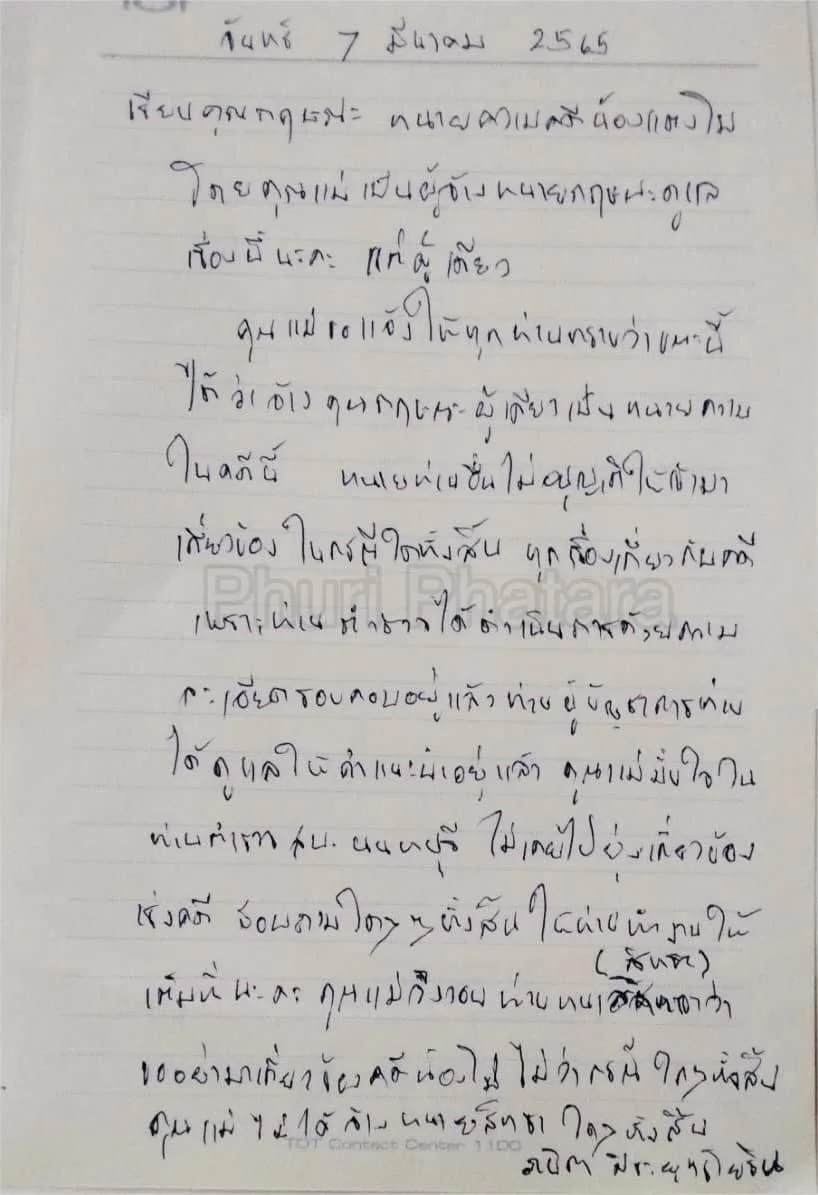 จันทร์ 7 มีนาคม 2565
เรียนคุณกฤษณะ ทนายความคดีน้องแตงโม
โดยคุณแม่เป็นผู้จ้างทนายกฤษณะดูแล
เรื่องนี้นะคะ แต่ผู้เดียว
คุณแม่ขอแจ้งให้ทุกท่านทราบว่าขณะนี้
ได้ว่าจ้างคุณกฤษณะผู้เดียวเป็นทนายความ
ในคดีนี้ ทนายท่านอื่นไม่อนุญาติให้เข้ามา
เกี่ยวข้องในกรณีใดทั้งสิ้น ทุกเรื่องเกี่ยวกับคดี
Phuri Phatara
เพราะท่านตำรวจได้ดำเนินการด้วยความ
ละเอียดรอบคอบอยู่แล้วท่านผู้บัญชาการท่าน
ได้ดูแลให้คำแนะนำอยู่แล้ว คุณแม่มั่นใจใน
ท่านตำรวจ สน. นนทบุรี ไม่เคยไปยุ่งเกี่ยวข้อง
เร่งคดี สอบถามใดๆทั้งสิ้น ให้ท่านทำงานให้
(สิทธา)
เต็มที่นะคะ คุณแม่จึงวอนท่านทนายว่า
ขออย่ามาเกี่ยวข้องคดีน้องโม ไม่ว่ากรณีใดๆทั้งสิ้น
คุณแม่ไม่ได้จ้างทนายสิทธา ใดๆทั้งสิ้น
TOT Contact Center 1100
ภนิดา ศิระยุทธโยธิน